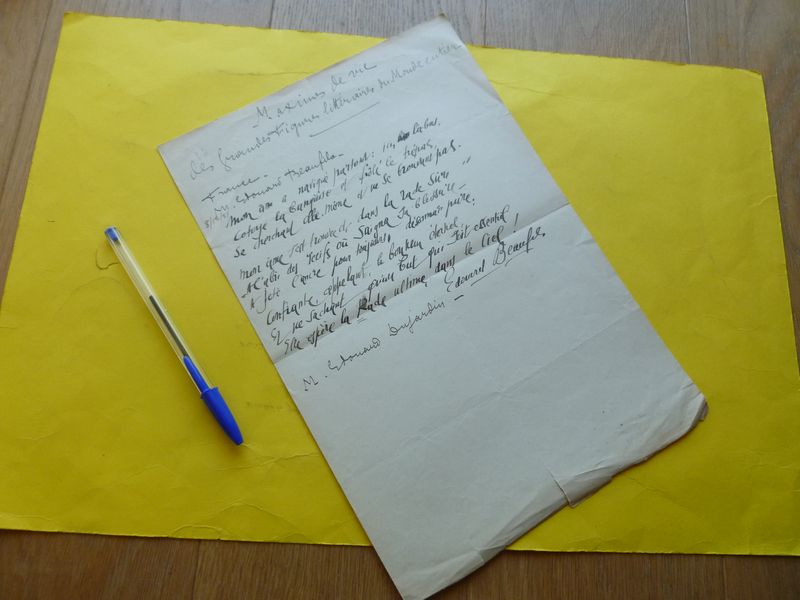 Maximes de vie
des Grandes Figures littéraires du Monde entier
France.
M. Edouard Beaufils.
Mon âme a navigué partout:
Côtoyé la banquise et frôlé le
Se cherchant elle-même et ne se trouvant pas.
Mon âme s'est trouvée; dans la rade sûre
A l'abri des récifs où saigna sa blessure
A jeté l'ancre pour toujours, désormais pure;
Confiante, appelant le bonheur éternel
Et ne sachant qu'un but qui soit essentiel
Elle espère la Rade ultime, dans le Ciel!
Edouard Beaufils
M. Edouard Dujardin